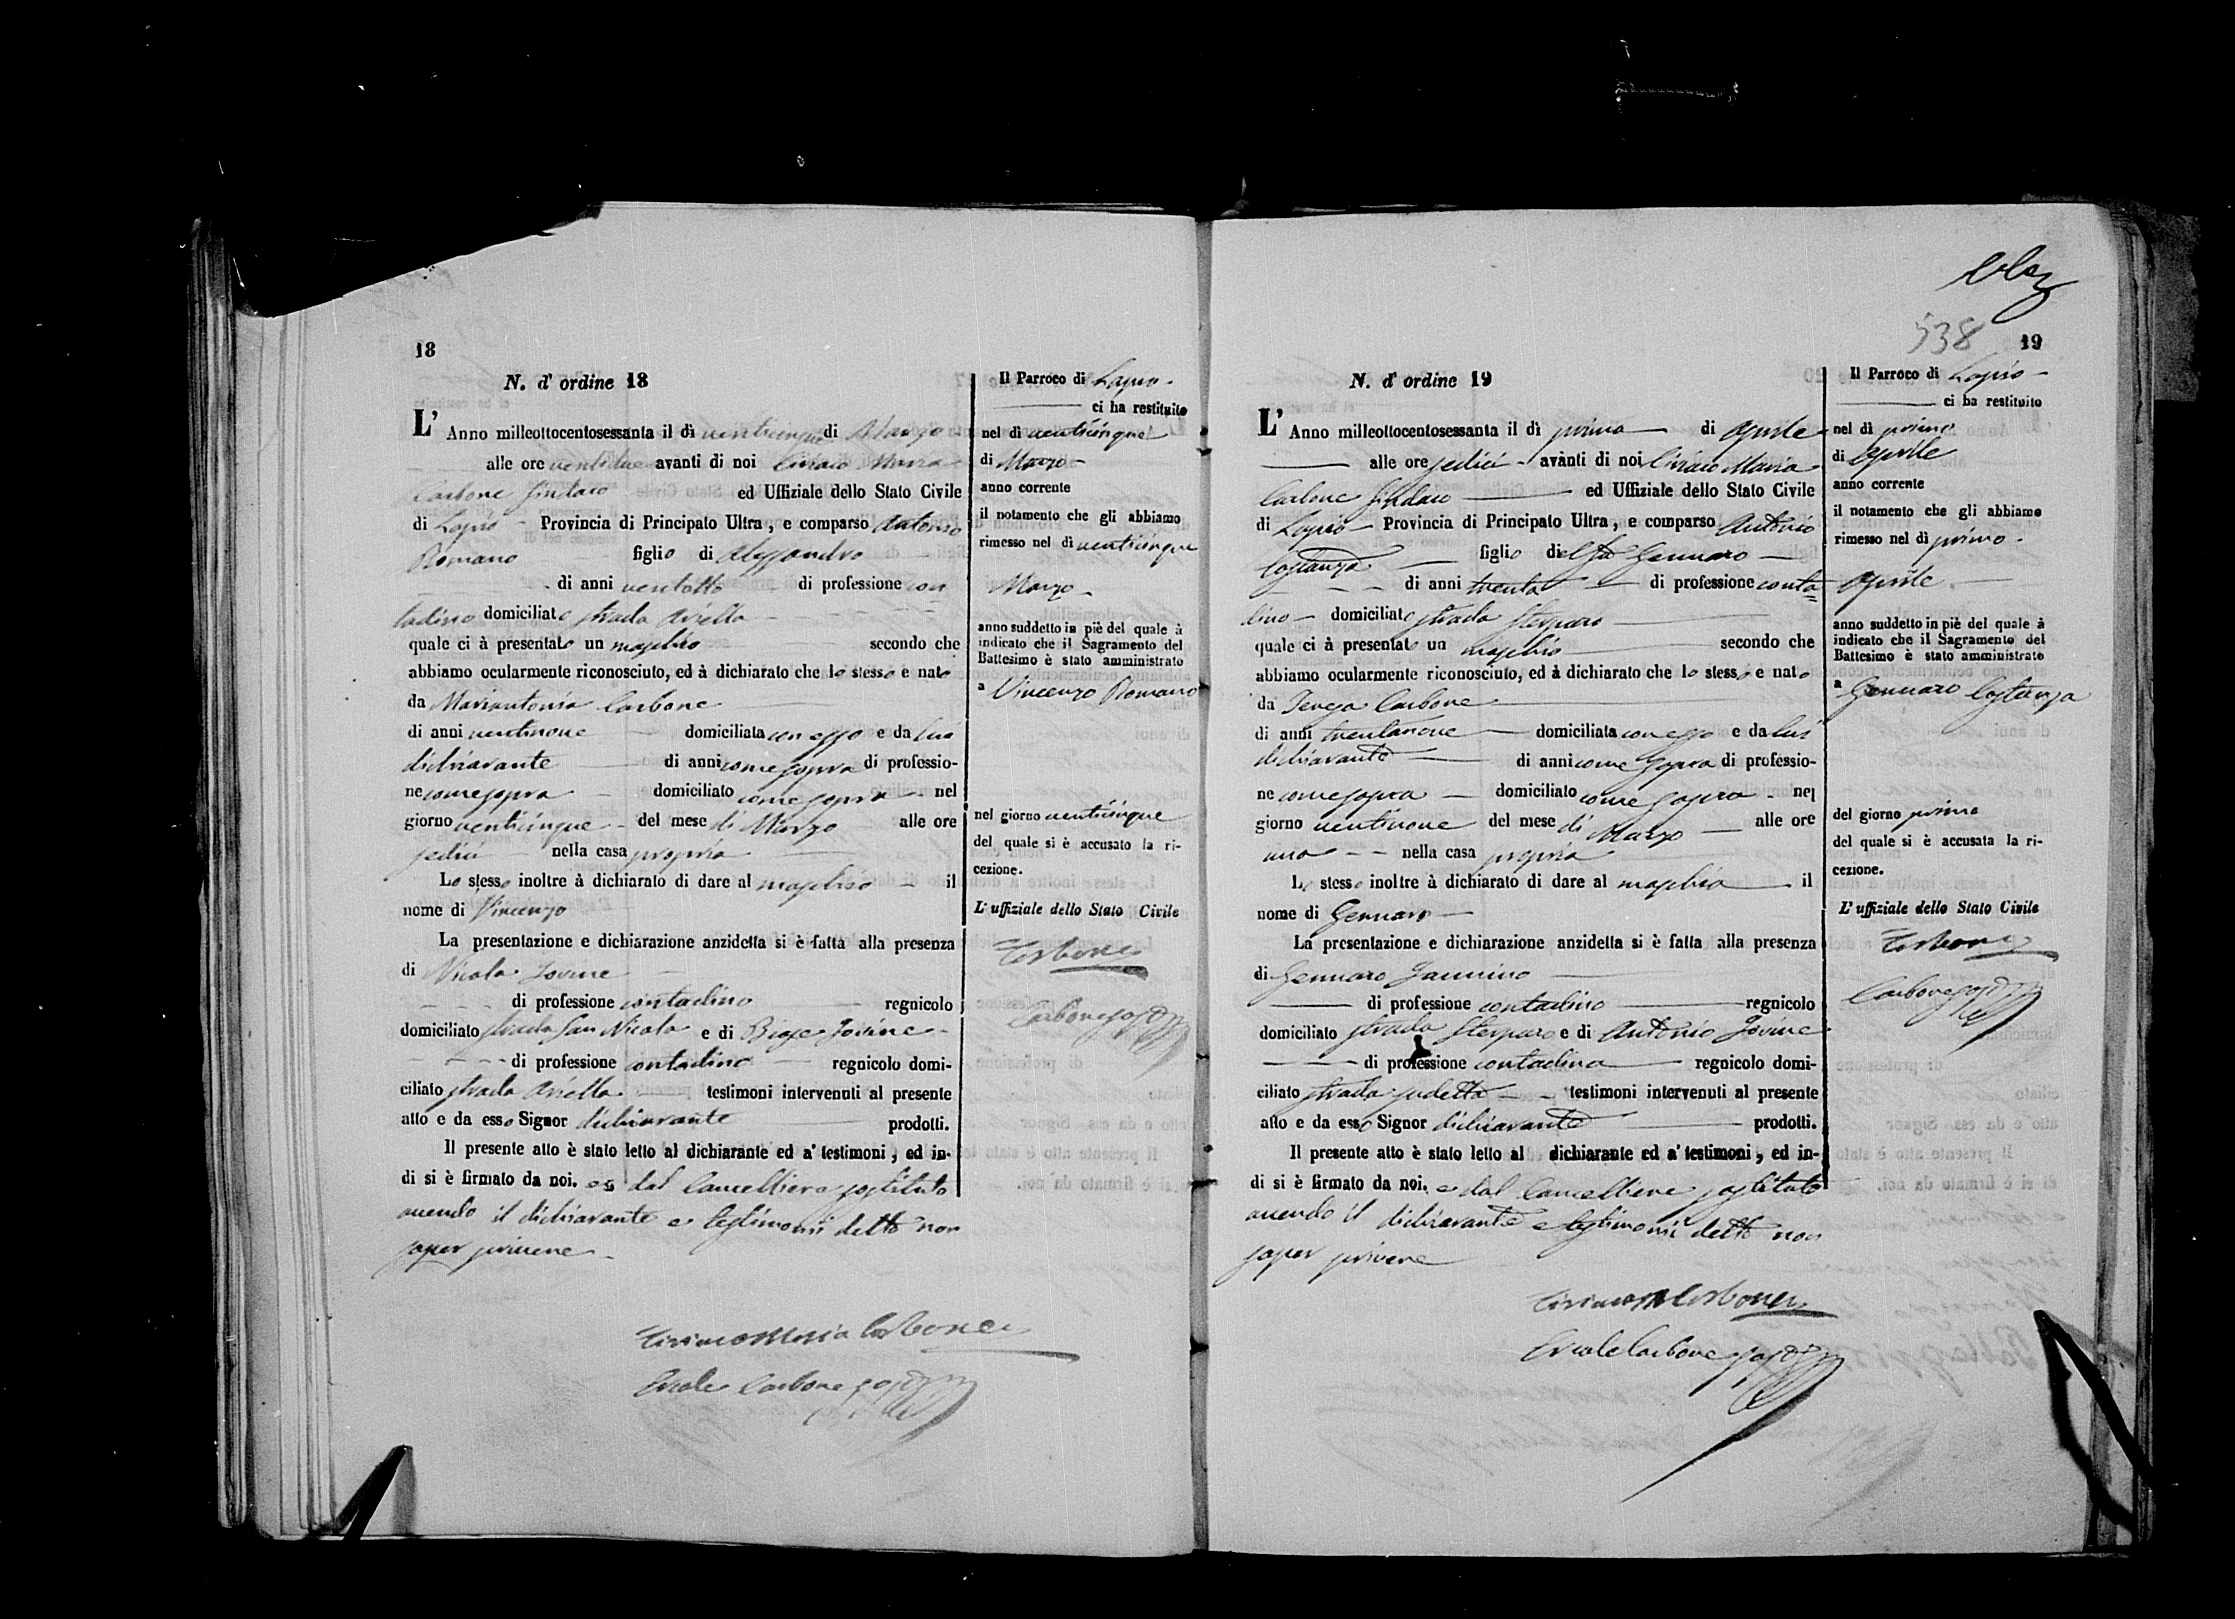 18
N. d' ordine 18
L' Anno milleottocentosessanta il dì venticinque di Marzo
alle ore ventidue avanti di noi Ciriaco Maria
Carbone Sindaco ed Uffiziale dello Stato Civile
di Lapio Provincia di Principato Ultra, e comparso Antonio
Romano figlio di Alessandro
di anni ventotto di professione con
tadino domiciliato strada Ariella
quale ci à presentato un maschio secondo che
abbiamo ocularmente riconosciuto, ed à dichiarato che lo stesso e nato
da Mariantonia Carbone
di anni ventinove domiciliata con esso e da lui
dichiarante di anni come sopra di professio-
ne come sopra domiciliato come sopra nel
giorno venticinque del mese di Marzo alle ore
sedici nella casa propria
Lo stesso inoltre à dichiarato di dare al maschio il
nome di Vincenzo
La presentazione e dichiarazione anzidetta si è fatta alla presenza
di Nicola Iovine
di professione contadino regnicolo
domiciliato strada San Nicola e di Biase Iovine
di professione contadino regnicolo domi-
ciliato strada Ariella testimoni intervenuti al presente
atto e da esso Signor dichiarante prodotti.
Il presente atto è stato letto al dichiarante ed a' testimoni, ed in-
di si è firmato da noi. e dal Cancelliere sostituto
avendo il dichiarante e testimoni detto non
saper scrivere
Ciriaco Maria Carbone
Ercole Carbone sost
Il Parroco di Lapio
ci ha restituito
nel dì venticinque
di Marzo
anno corrente
il notamento che gli abbiamo
rimesso nel dì venticinque
Marzo
anno suddetto in piè del quale à
indicato che il Sagramento del
Battesimo è stato amministrato
a Vincenzo Romano
nel giorno venticinque
del quale si è accusato la ri-
cezione.
L' uffiziale dello Stato Civile
Carbone
Carbone sost
538
19
N. d' ordine 19
L' Anno milleottocentosessanta il dì primo di Aprile
alle ore sedici avanti di noi Ciriaco Maria
Carbone Sindaco ed Uffiziale dello Stato Civile
di Lapio Provincia di Principato Ultra, e comparso Antonio
Costanza figlio di Gennaro
di anni trenta di professione conta=
dino domiciliato strada Sterparo
quale ci à presentato un maschio secondo che
abbiamo ocularmente riconosciuto, ed à dichiarato che lo stesso e nato
da Teresa Carbone
di anni trentanove domiciliata con esso e da lui
dichiarante di anni come sopra di professio-
ne come sopra domiciliato come sopra nel
giorno ventinove del mese di Marzo alle ore
una nella casa propria
Lo stesso inoltre à dichiarato di dare al maschio il
nome di Gennaro
La presentazione e dichiarazione anzidetta si è fatta alla presenza
di Gennaro Iannino
di professione contadino regnicolo
domiciliato strada Sterparo e di Antonio Iovine
di professione contadino regnicolo domi-
ciliato strada sudetta testimoni intervenuti al presente
atto e da esso Signor dichiarante prodotti.
Il presente atto è stato letto al dichiarante ed a' testimoni, ed in-
di si è firmato da noi. e dal Cancelliere sostituto
avendo il dichiarante e testimoni detto non
saper scrivere
Ciriaco M Carbone
Ercole Carbone sost
Il Parroco di Lapio
ci ha restituito
nel dì primo
di Aprile
anno corrente
il notamento che gli abbiamo
rimesso nel dì primo
Aprile
anno suddetto in piè del quale à
indicato che il Sagramento del
Battesimo è stato amministrato
a Gennaro Costanza
del giorno primo
del quale si è accusata la ri-
cezione.
L' uffiziale dello Stato Civile
Carbone
Carbone sost